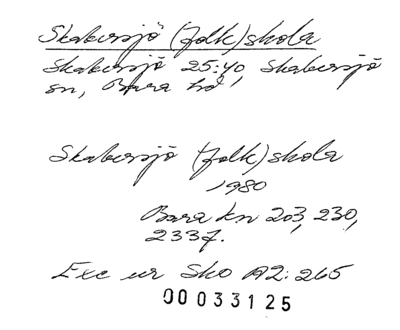 Skabersjö (folk)skola
Skabersjö 25:40, Skabersjö
sn, Bara hd
Skabersjö (folk)skola
1980
Bara kn 203, 230,
2337.
Exc ur Sko A2: 265
00033125